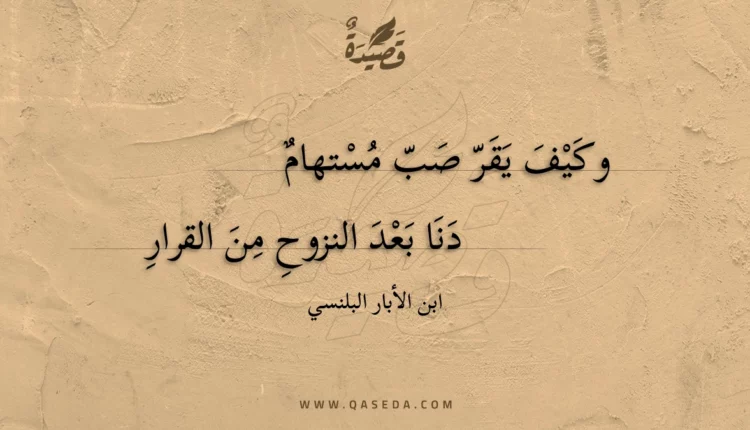 قَصِيدَةٌ
وكَيْفَ يَقَرّ صَبّ مُسْتهامٌ
دَنَا بَعْدَ النزوحِ مِنَ القرارِ
ابن الأبار البلنسي
WWW.QASEDA.COM